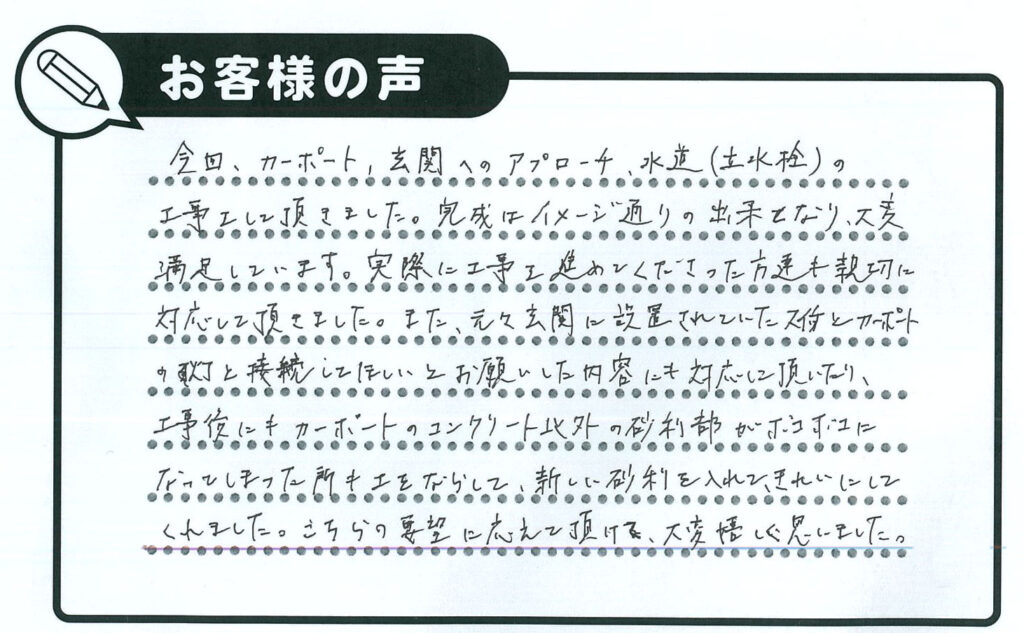 お客様の声
今回、カーポート,玄関へのアプローチ、水道(立水栓)の
工事をして頂きました。完成はイメージ通りの出来となり、大変
満足しています。実際に工事を進めてくださった方達も親切に
対応して頂きました。また、元々玄関に設置されていた灯とカーポート
の灯と接続してほしいとお願いした内容にも対応して頂いたり、
工事後にもカーポートのコンクリート以外の砂利部がボコボコに
なってしまった所も土をならして、新しい砂利を入れて、きれいにして
くれました。こちらの要望に応えて頂け、大変嬉しく思いました。